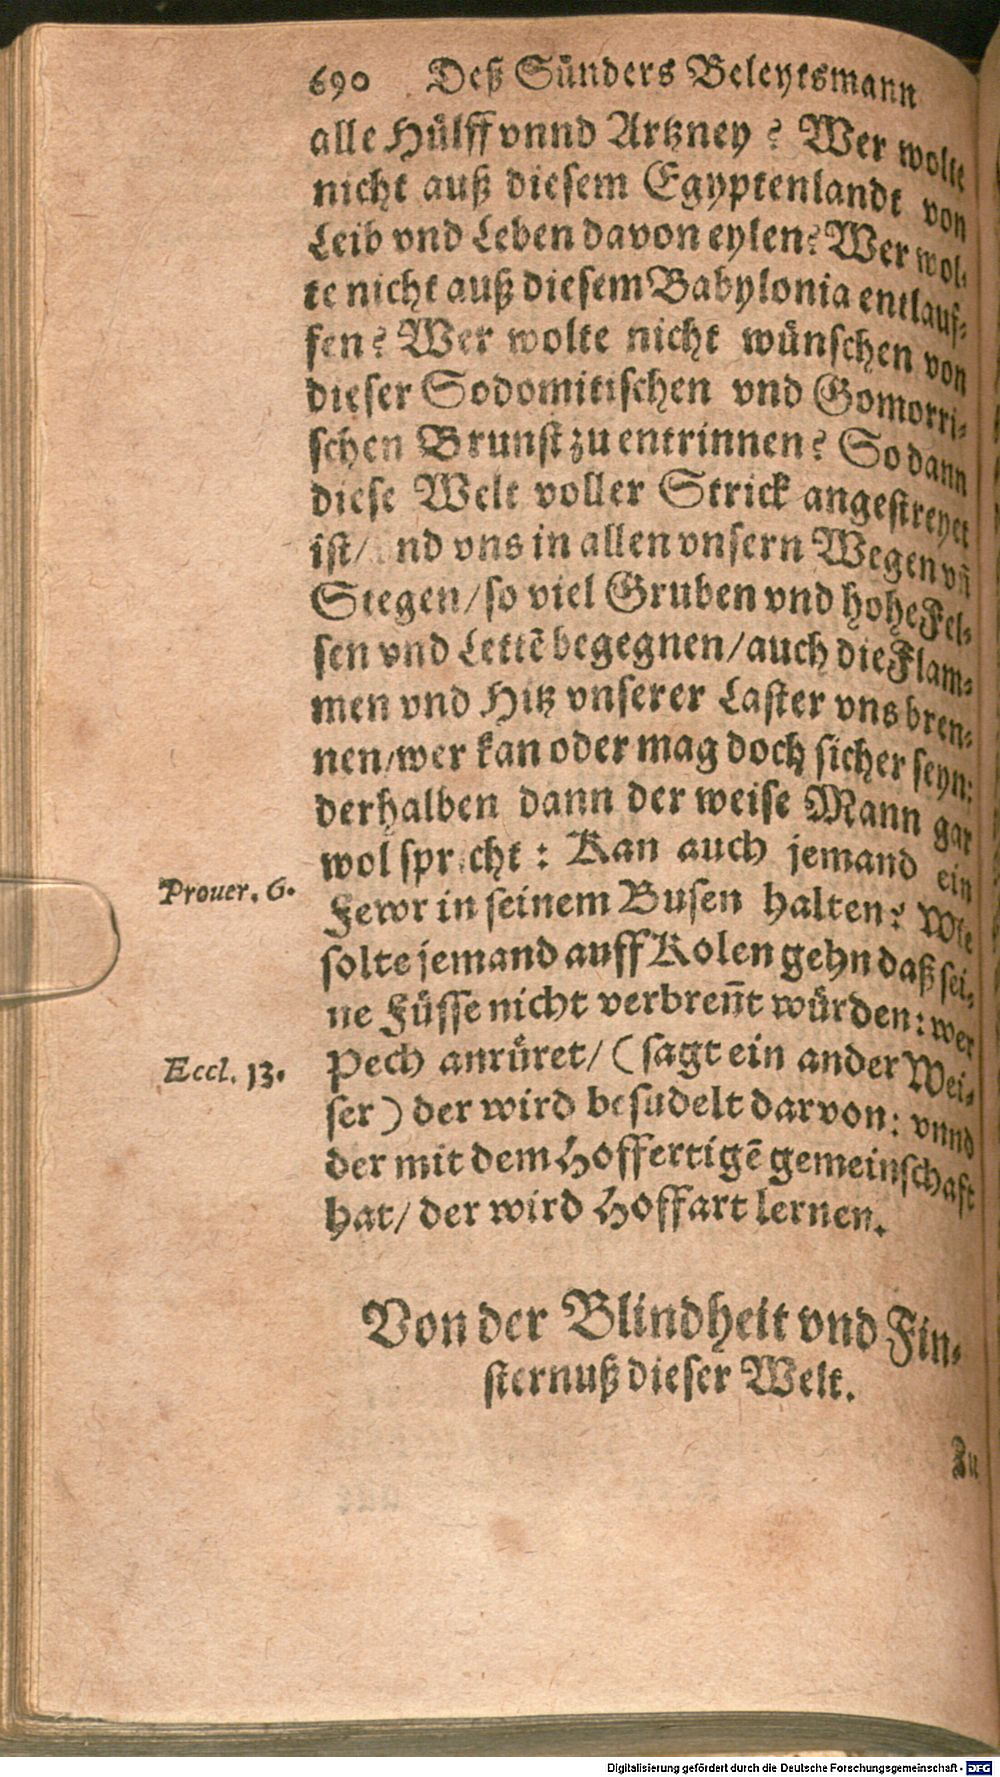 690 Deß Sünders Beleytsmann
alle Hülff vnnd Artzney? Wer wolte
nicht auß diesem Egyptenlandt von
Leib vnd Leben davon eylen? Wer wol-
te nicht auß diesem Babylonia entlauf-
fen? Wer wolte nicht wünschen von
dieser Sodomitischen vnd Gomorri-
schen Brunst zu entrinnen? So dann
diese Welt voller Strick angestreyet
ist/ nd vns in allen vnsern Wegen vñ
Stegen/ so viel Gruben vnd hohe Fel-
sen vnd Lettẽ begegnen/ auch die Flam-
men vnd Hitz vnserer Laster vns bren-
nen/ wer kan oder mag doch sicher seyn:
derhalben dann der weise Mann gar
wol spricht: Kan auch jemand ein
Prouer. 6.
Fewr in seinem Busen halten? Wie
solte jemand auff Kolen gehn daß sei-
ne Füsse nicht verbreñt würden: wer
Eccl. 13.
Pech anrüret/ (sagt ein ander Wei-
ser) der wird besudelt darvon: vnnd
der mit dem Hoffertigẽ gemeinschaft
hat/ der wird Hoffart lernen.
Von der Blindheit vnd Fin-
sternuß dieser Welt.
Zu
Digitalisierung gefördert durch die Deutsche Forschungsgemeinschaft - DFG